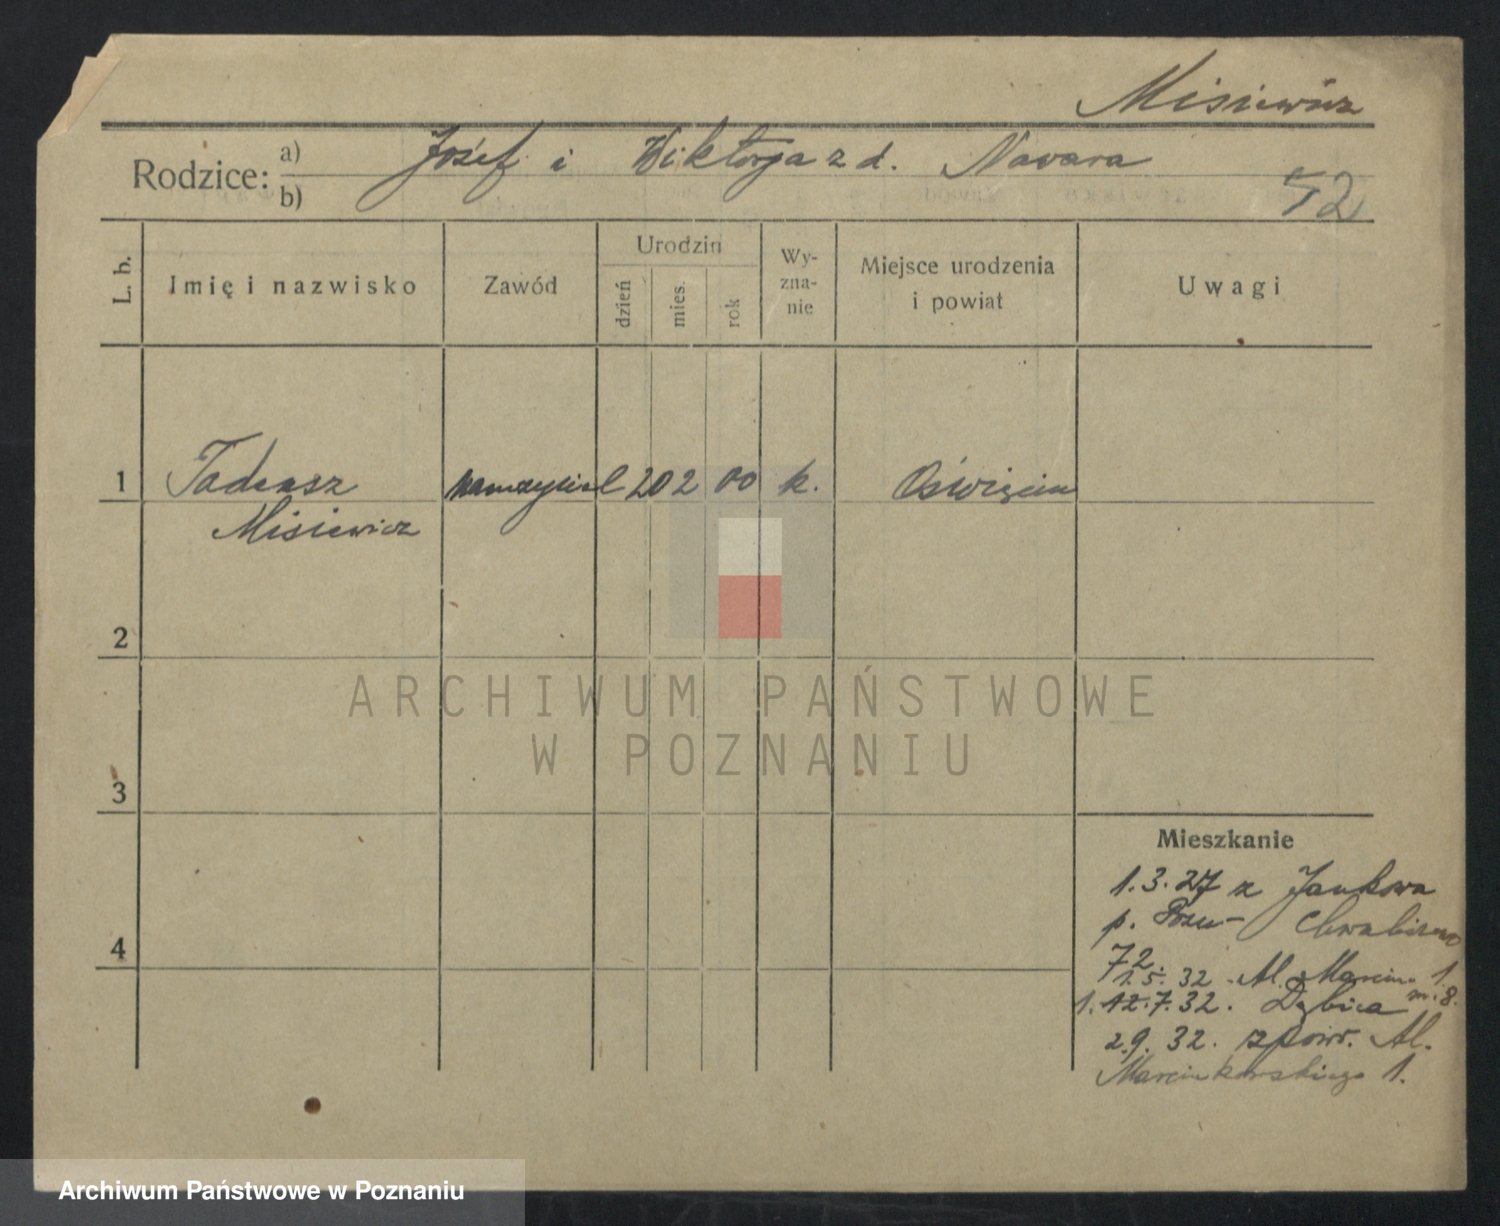 Misiewicz
Rodzice: a) Józef i Wiktorja z d. Nawara
b)
52
L. b.
Imię i nazwisko
Zawód
Urodzin
dzień
mies.
rok
Wy-
zna-
nie
Miejsce urodzenia
i powiat
Uwagi
1 Tadeusz nauczyciel 20 2 00 k. Oświęcim
Misiewicz
2
3
4
Mieszkanie
1.3.27 z Jankowa
p. Pozn-
72
1.5.32 Al. Marcink. 1
m. 8.
1. 12.7.32. Dębica
2.9.32. z powr. Al.
Marcinkowskiego 1.
ARCHIWUM PAŃSTWOWE
W POZNANIU
Archiwum Państwowe w Poznaniu